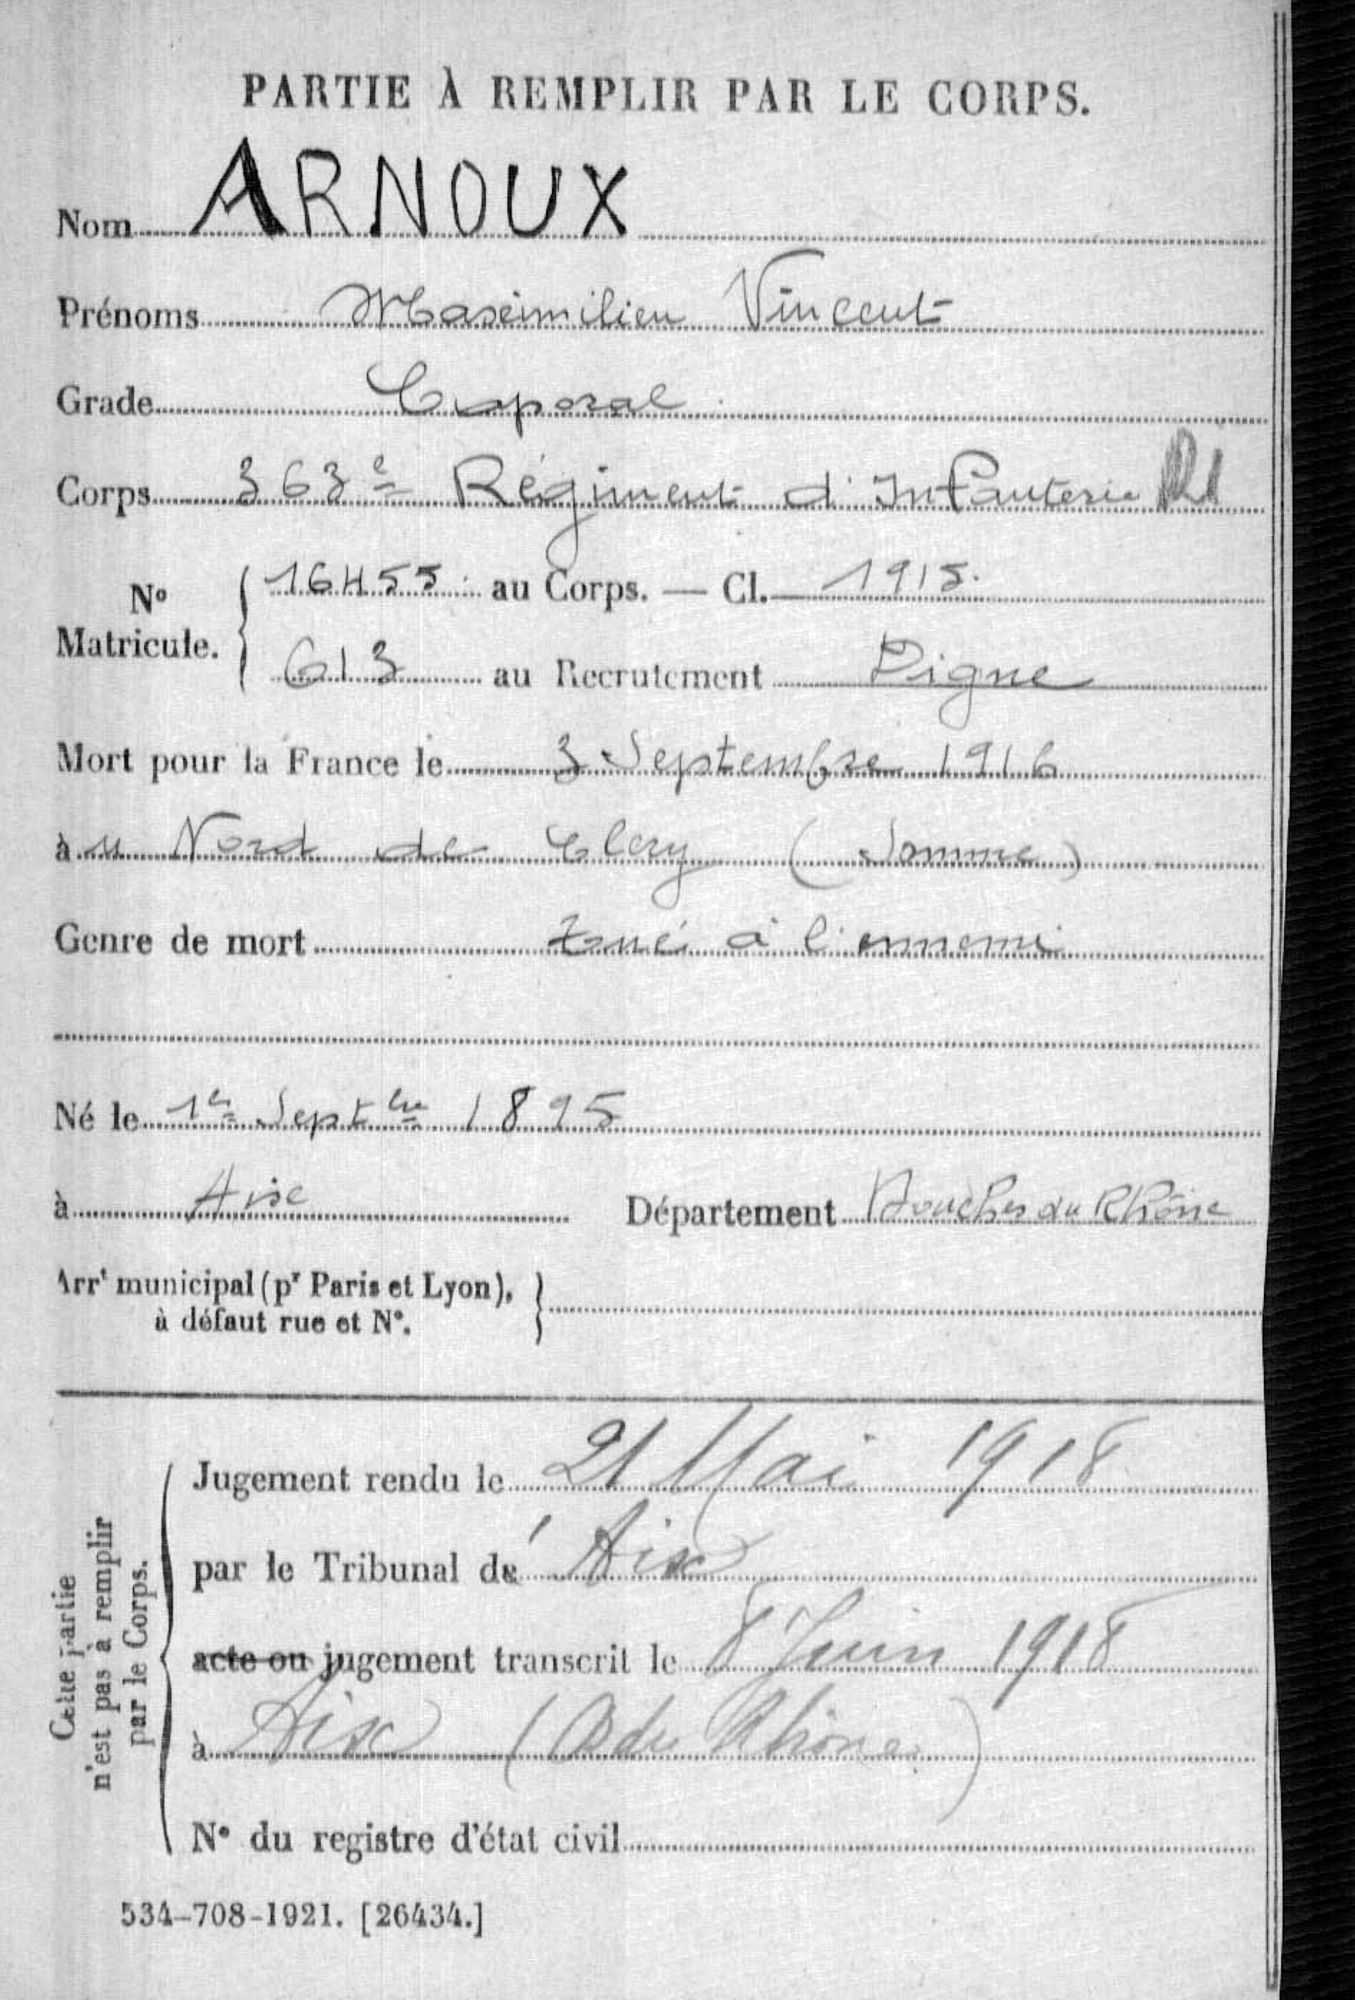 PARTIE À REMPLIR PAR LE CORPS.
Nom ARNOUX
Prénoms Maximilien Vincent
Grade Caporal
Corps 363e Régiment d'Infanterie
No Matricule. { 16455 au Corps. — Cl. 1915.
613 au Recrutement Digne
Mort pour la France le 3 Septembre 1916
à u Nord de Clery (Somme)
Genre de mort tué à l'ennemi
Né le 1er Septbre 1895
à Aix Département Bouches du Rhône
Arrt municipal (pr Paris et Lyon), à défaut rue et No.
Cette partie n'est pas à remplir par le Corps.
Jugement rendu le 21 Mai 1918
par le Tribunal dé Aix
acte ou jugement transcrit le 8 Juin 1918
à Aix (B du Rhône)
No du registre d'état civil
534-708-1921. [26434.]